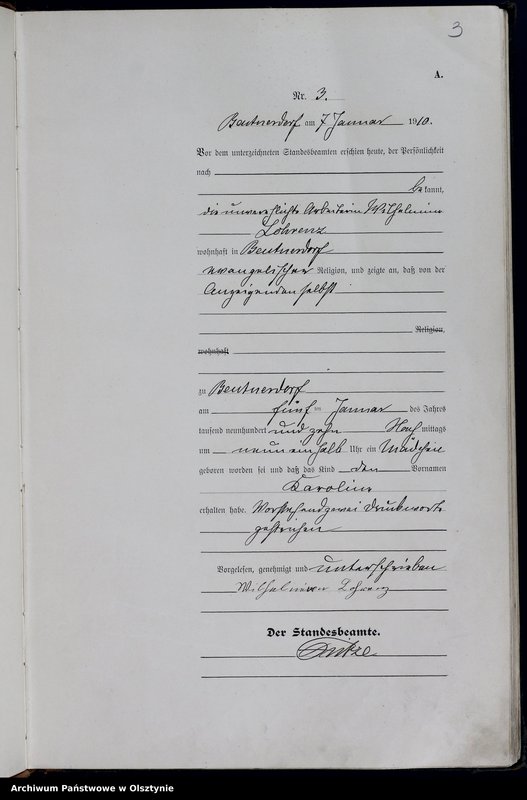 3
A.
Nr. 3.
Beutnerdorf am 7 Januar 1910.
Vor dem unterzeichneten Standesbeamten erschien heute, der Persönlichkeit
nach
be kannt,
die unverehelichte Arbeiterin Wilhelmine
Lohrenz
wohnhaft in Beutnerdorf
evangelischer Religion, und zeigte an, daß von der
Anzeigenden selbst
Religion,
wohnhaft
zu Beutnerdorf
am fünf ten Januar des Jahres
tausend neunhundert und zehn Nach mittags
um neun einhalb Uhr ein Mädchen
geboren worden sei und daß das Kind den Vornamen
Karoline
erhalten habe. Vorstehend zwei Druckworte
gestrichen
Vorgelesen, genehmigt und unterschrieben
Wilhelmine Lohrenz
Der Standesbeamte.
Archiwum Państwowe w Olsztynie